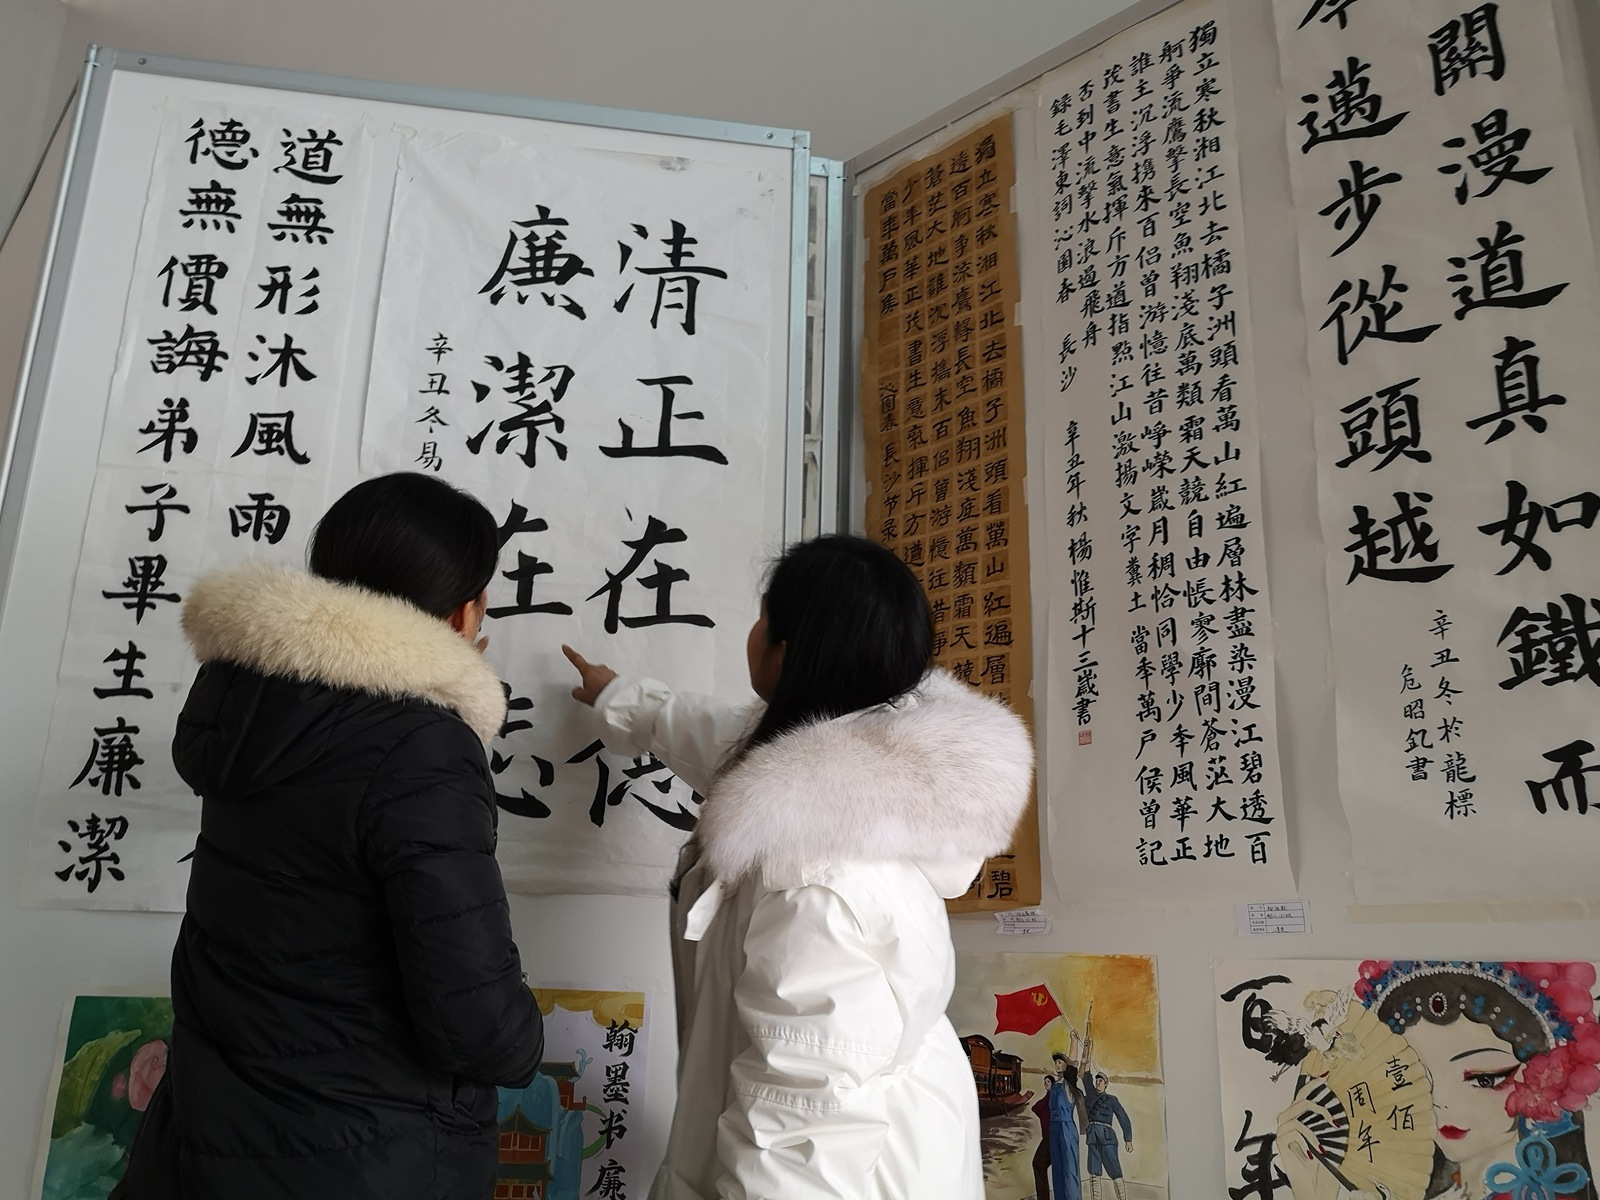 道無形沐風雨
德無價誨弟子畢生廉潔
清正在德
廉潔在志
辛丑冬易
獨立寒秋湘江北去橘子洲頭看萬山紅遍層碧
透百舸争流鷹擊長空魚翔淺底萬類霜天競
蒼茫大地誰浮攜來百侶曾游憶往昔崢
少年風華正茂書生意氣揮斥方遒
當年萬戶侯 沁園春長沙节录
獨立寒秋湘江北去橘子洲頭看萬山紅遍層林盡染漫江碧透百
舸爭流鷹擊長空魚翔淺底萬類霜天競自由悵寥廓間蒼茫大地
誰主沉浮携來百侶曾游憶往昔崢嶸歲月稠恰同學少年風華正
茂書生意氣揮斥方遒指點江山激揚文字糞土當年萬戶侯曾記
否到中流擊水浪遏飛舟
錄毛澤東詞沁園春 長沙 辛丑年秋楊惟斯十三歲書
關漫道真如鐵而
今邁步從頭越
辛丑冬於龍標
危昭釓書
翰墨书廉
百年
壹佰
周年